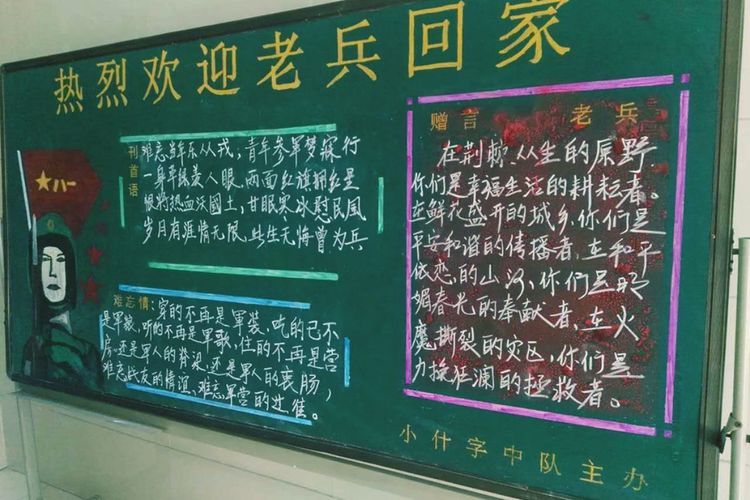 热烈欢迎老兵回家
八一
刊首语
难忘当年乐从戎，青年参军梦寐行
一身平绿羡人眼，两面红旗拥红星
狠将热血沃國土，甘眠寒冰慰民風
岁月有涯情无限，此生无悔曾为兵
难忘情：穿的不再是軍裝、吃的已不
是军粮、听的不再是军歌，住的不再是营
房，还是军人的脊梁、还是军人的衷肠，
难忘战友的情谊、难忘军营的
赠言 老兵
在荆棘从生的原野，
你们是幸福生活的耕耘者。
在鲜花盛开的城乡，你们是
平安和谐的传播者，在和平
依恋的山河、你们是明
媚春光的奉献者，在火
魔撕裂的灾区，你们是
力挽狂澜的拯救者。
小什字中队主办